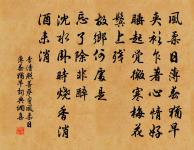 風柔日薄春猶早
夾衫乍著心情好
睡起覺微寒梅花
鬢上殘
故鄉何處是
忘了除非醉
沈水臥時燒香消
酒未消
李清照菩薩蠻風柔日
薄春猶早詞